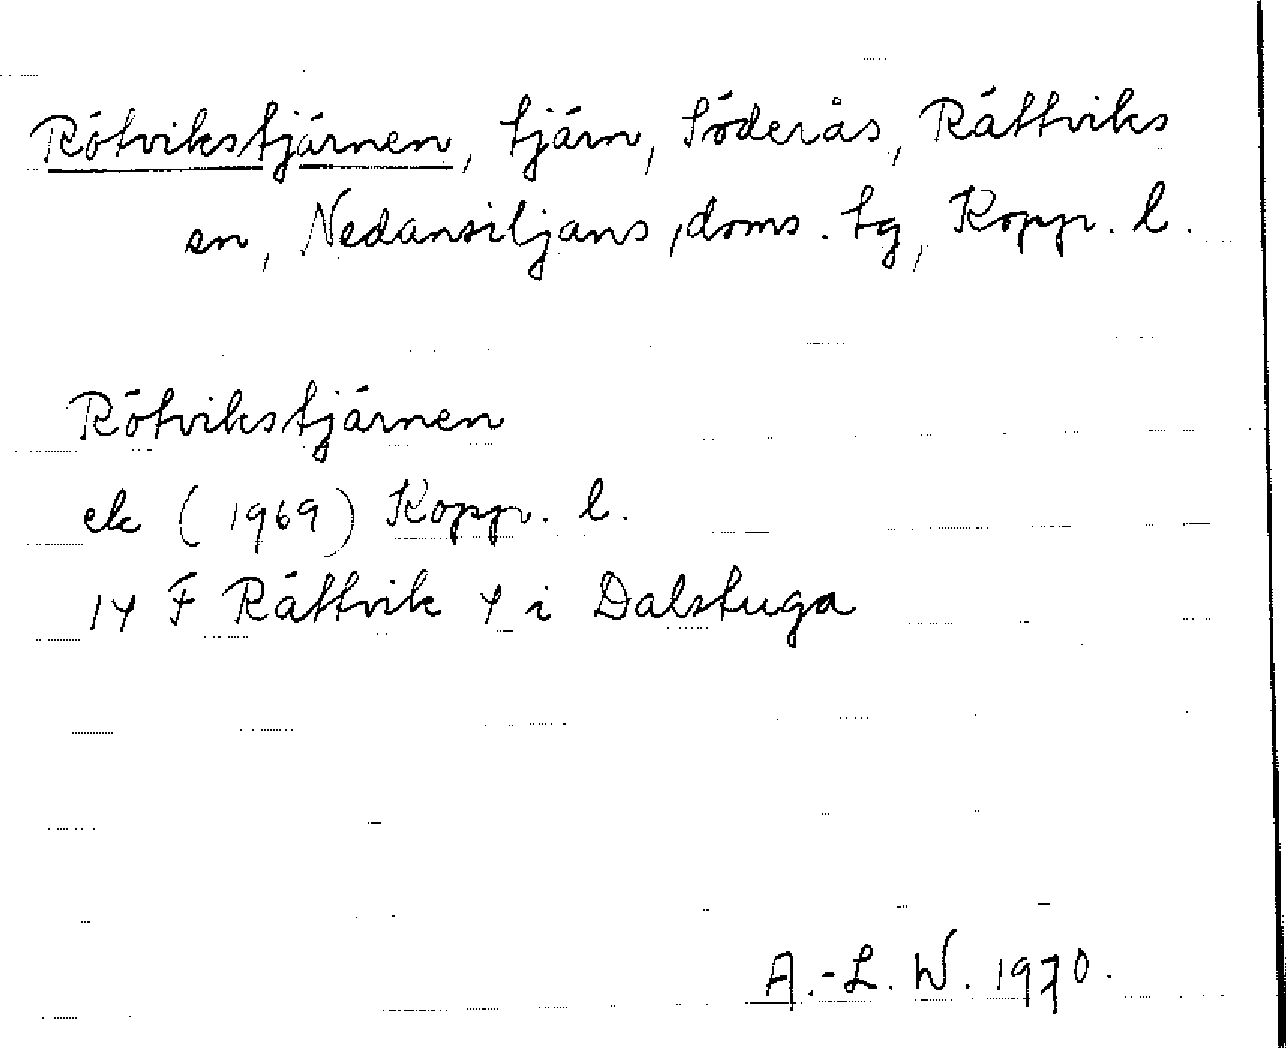 Rötvikstjärnen, tjärn, Söderås, Rättviks
sn, Nedansiljans doms. tg, Kopp. l.
Rötvikstjärnen
ek (1969) Kopp. l.
14 F Rättvik 4 i Dalstuga
A.-L. W. 1970.